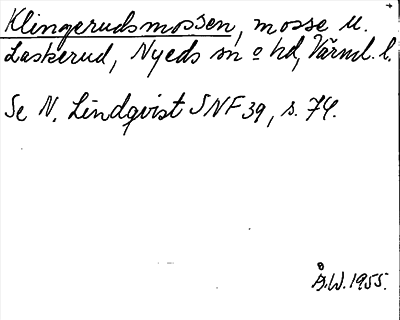 Klingerudsmossen, mosse u.
Laskerud, Nyeds sn o hd, Värml. l.
Se N. Lindqvist SNF 39, s. 74.
Å.W. 1955.